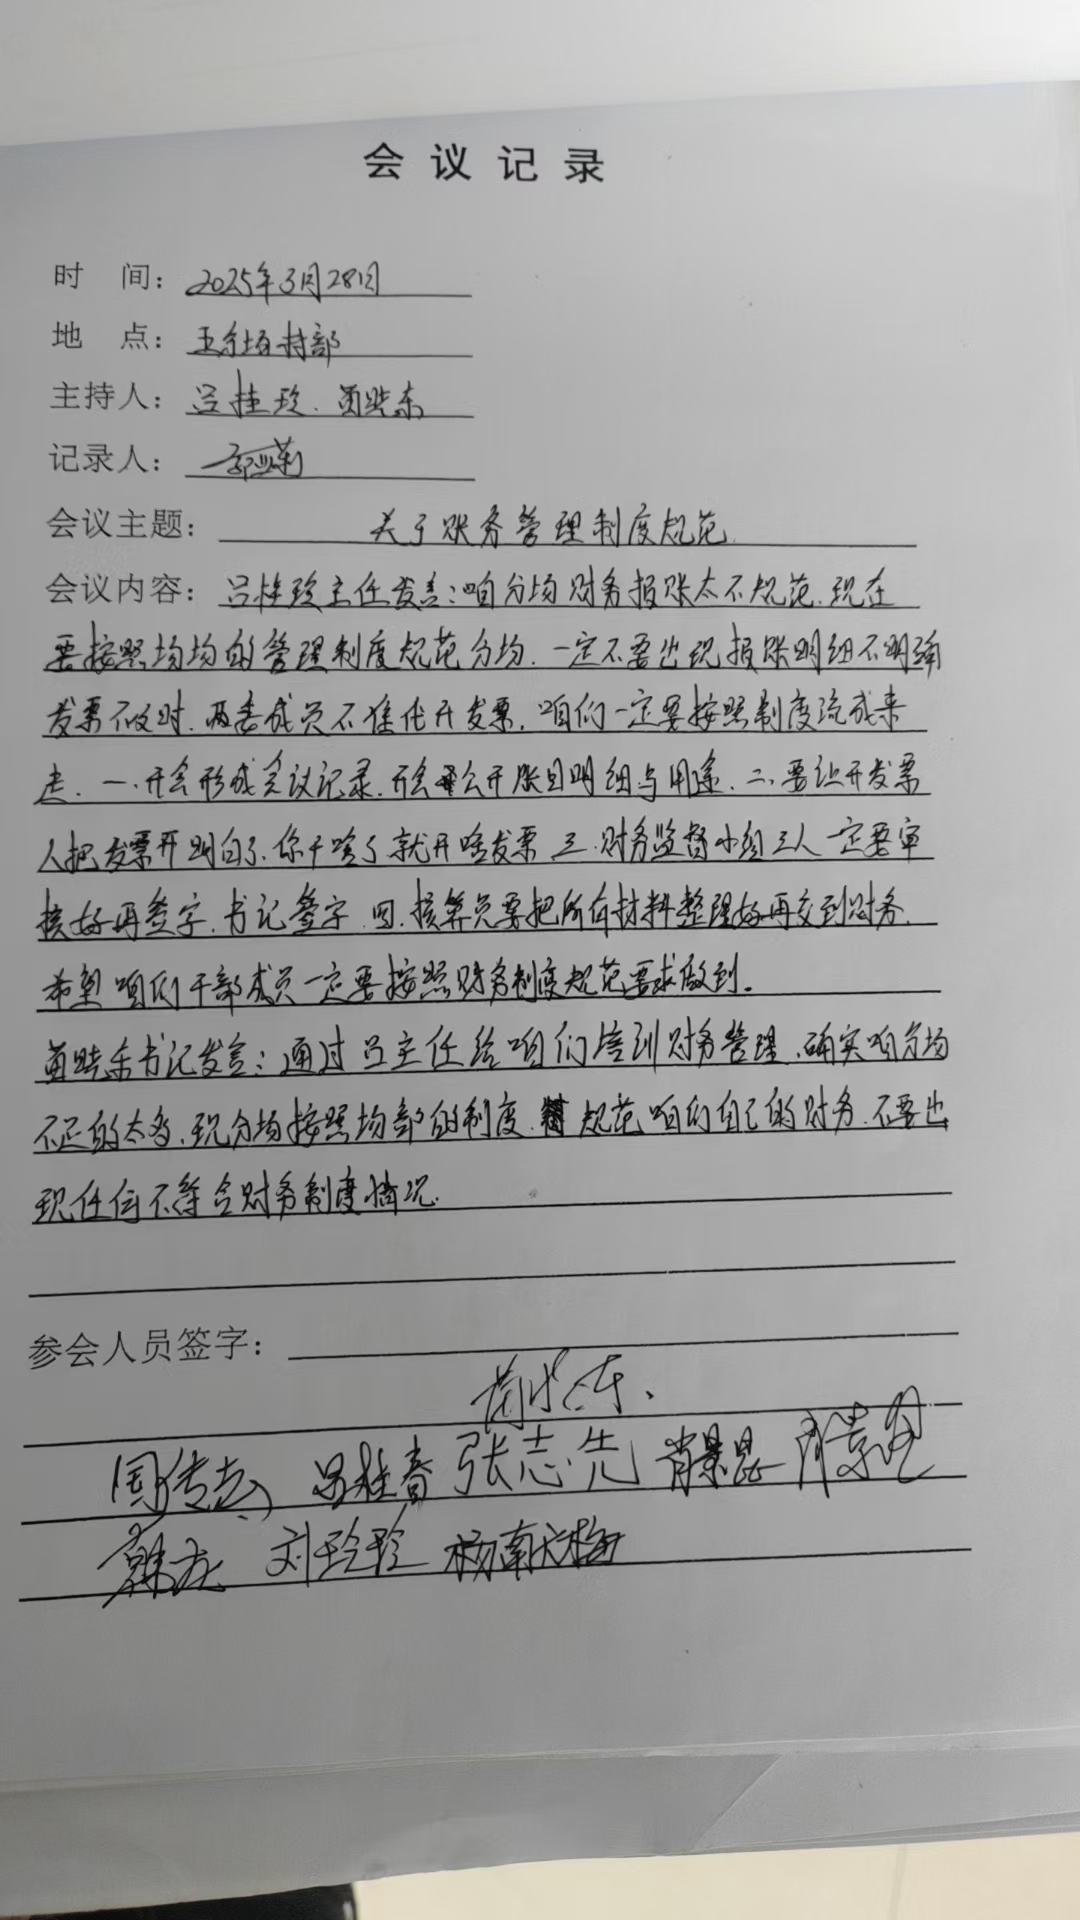 会议记录
时 间：2025年3月28日
地 点：五分场持部
主持人：吕桂珍、黄胜东
记录人：郭亚莉
会议主题：关于账务管理制度规范
会议内容：吕桂珍主任发言：咱分场财务报账太不规范，现在
要按照场场的管理制度规范分场，一定不要出现报账明细不明确
发票不及时，两委成员不准代开发票，咱们一定要按照制度流成来
走，一、开会形成会议记录，开会公开账目明细与用途，二、要让开发票
人把发票开明白了，你干啥了就开啥发票 三、财务监督小组三人一定要审
核好再签字，书记签字，四、核算员要把所有材料整理好再交到财务，
希望咱们干部成员一定要按照财务制度规范要求做到。
黄胜东书记发言：通过吕主任给咱们培训财务管理，确实咱分场
不足的太多，现分场按照场部的制度，规范咱们自己的财务，不要出
现任何不符合财务制度情况
参会人员签字：
张志先 肖景
刘玲玲 杨